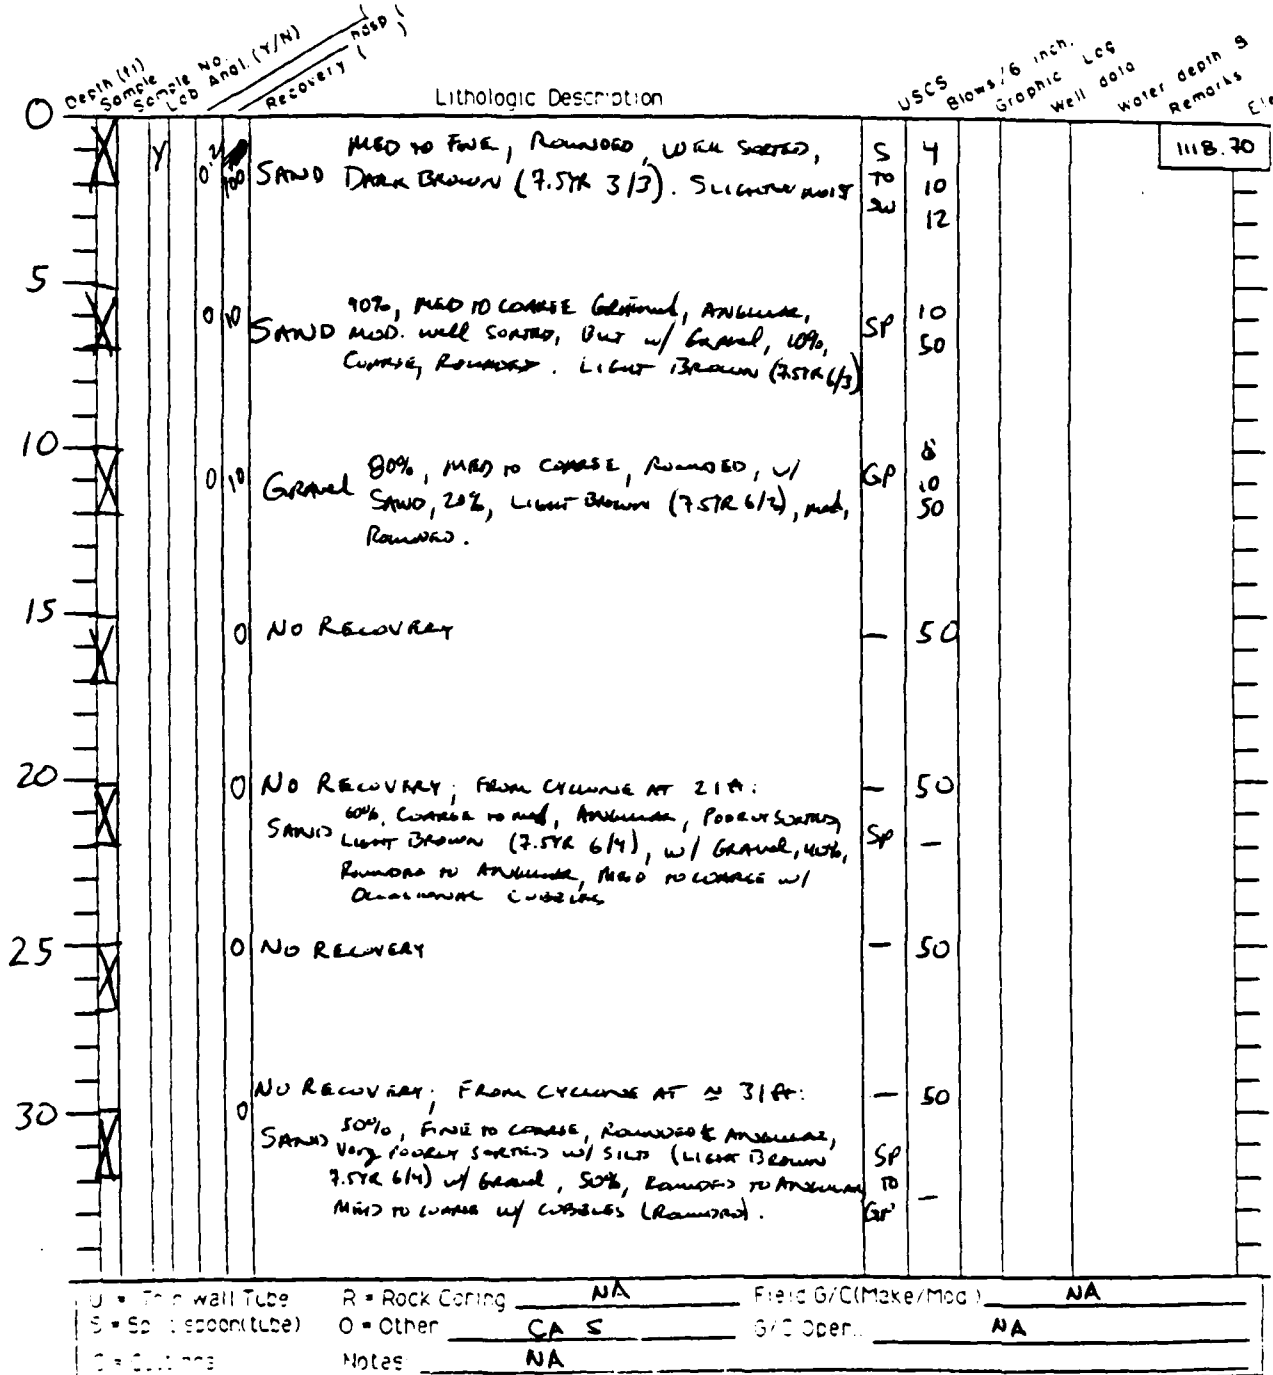 Depth (ft) Sample Sample No. Lab Anal. (Y/N) Recovery ( ) Lithologic Description USCS Blows/6 inch. Graphic Log Well data Water depth Remarks
0
Y 0.2 100 SAND MED TO FINE, ROUNDED, WELL SORTED, S 4 1118.70
DARK BROWN (7.5YR 3/3). SLIGHTLY MOIST TO 10
SW 12
5
0 10 SAND 90%, MED TO COARSE GRAINED, ANGULAR, SP 10
MOD. WELL SORTED, BUT W/ GRAVEL, 10%, 50
COARSE, ROUNDED. LIGHT BROWN (7.5YR 6/3)
10
0 10 GRAVEL 80%, MED TO COARSE, ROUNDED, W/ GP 10
SAND, 20%, LIGHT BROWN (7.5YR 6/3), MED, 50
ROUNDED.
15
0 NO RECOVERY — 50
20
0 NO RECOVERY; FROM CYCLONE AT 21 ft: — 50
SAND 60%, COARSE TO MED, ANGULAR, POORLY SORTED, SP —
LIGHT BROWN (7.5YR 6/4), W/ GRAVEL, 40%,
ROUNDED TO ANGULAR, MED TO COARSE W/
OCCASIONAL COBBLES
25
0 NO RECOVERY — 50
NO RECOVERY; FROM CYCLONE AT ≈ 31 ft: — 50
30 0
SAND 50%, FINE TO COARSE, ROUNDED & ANGULAR,
VERY POORLY SORTED W/ SILT (LIGHT BROWN SP
7.5YR 6/4) W/ GRAVEL, 50%, ROUNDED TO ANGULAR TO —
MED TO COARSE W/ COBBLES (ROUNDED). GP
U = Thin wall Tube R = Rock Coring NA Field G/C(Make/Mod.) NA
S = Split spoon(tube) O = Other CA S G/C Oper. NA
C = Cuttings Notes: NA